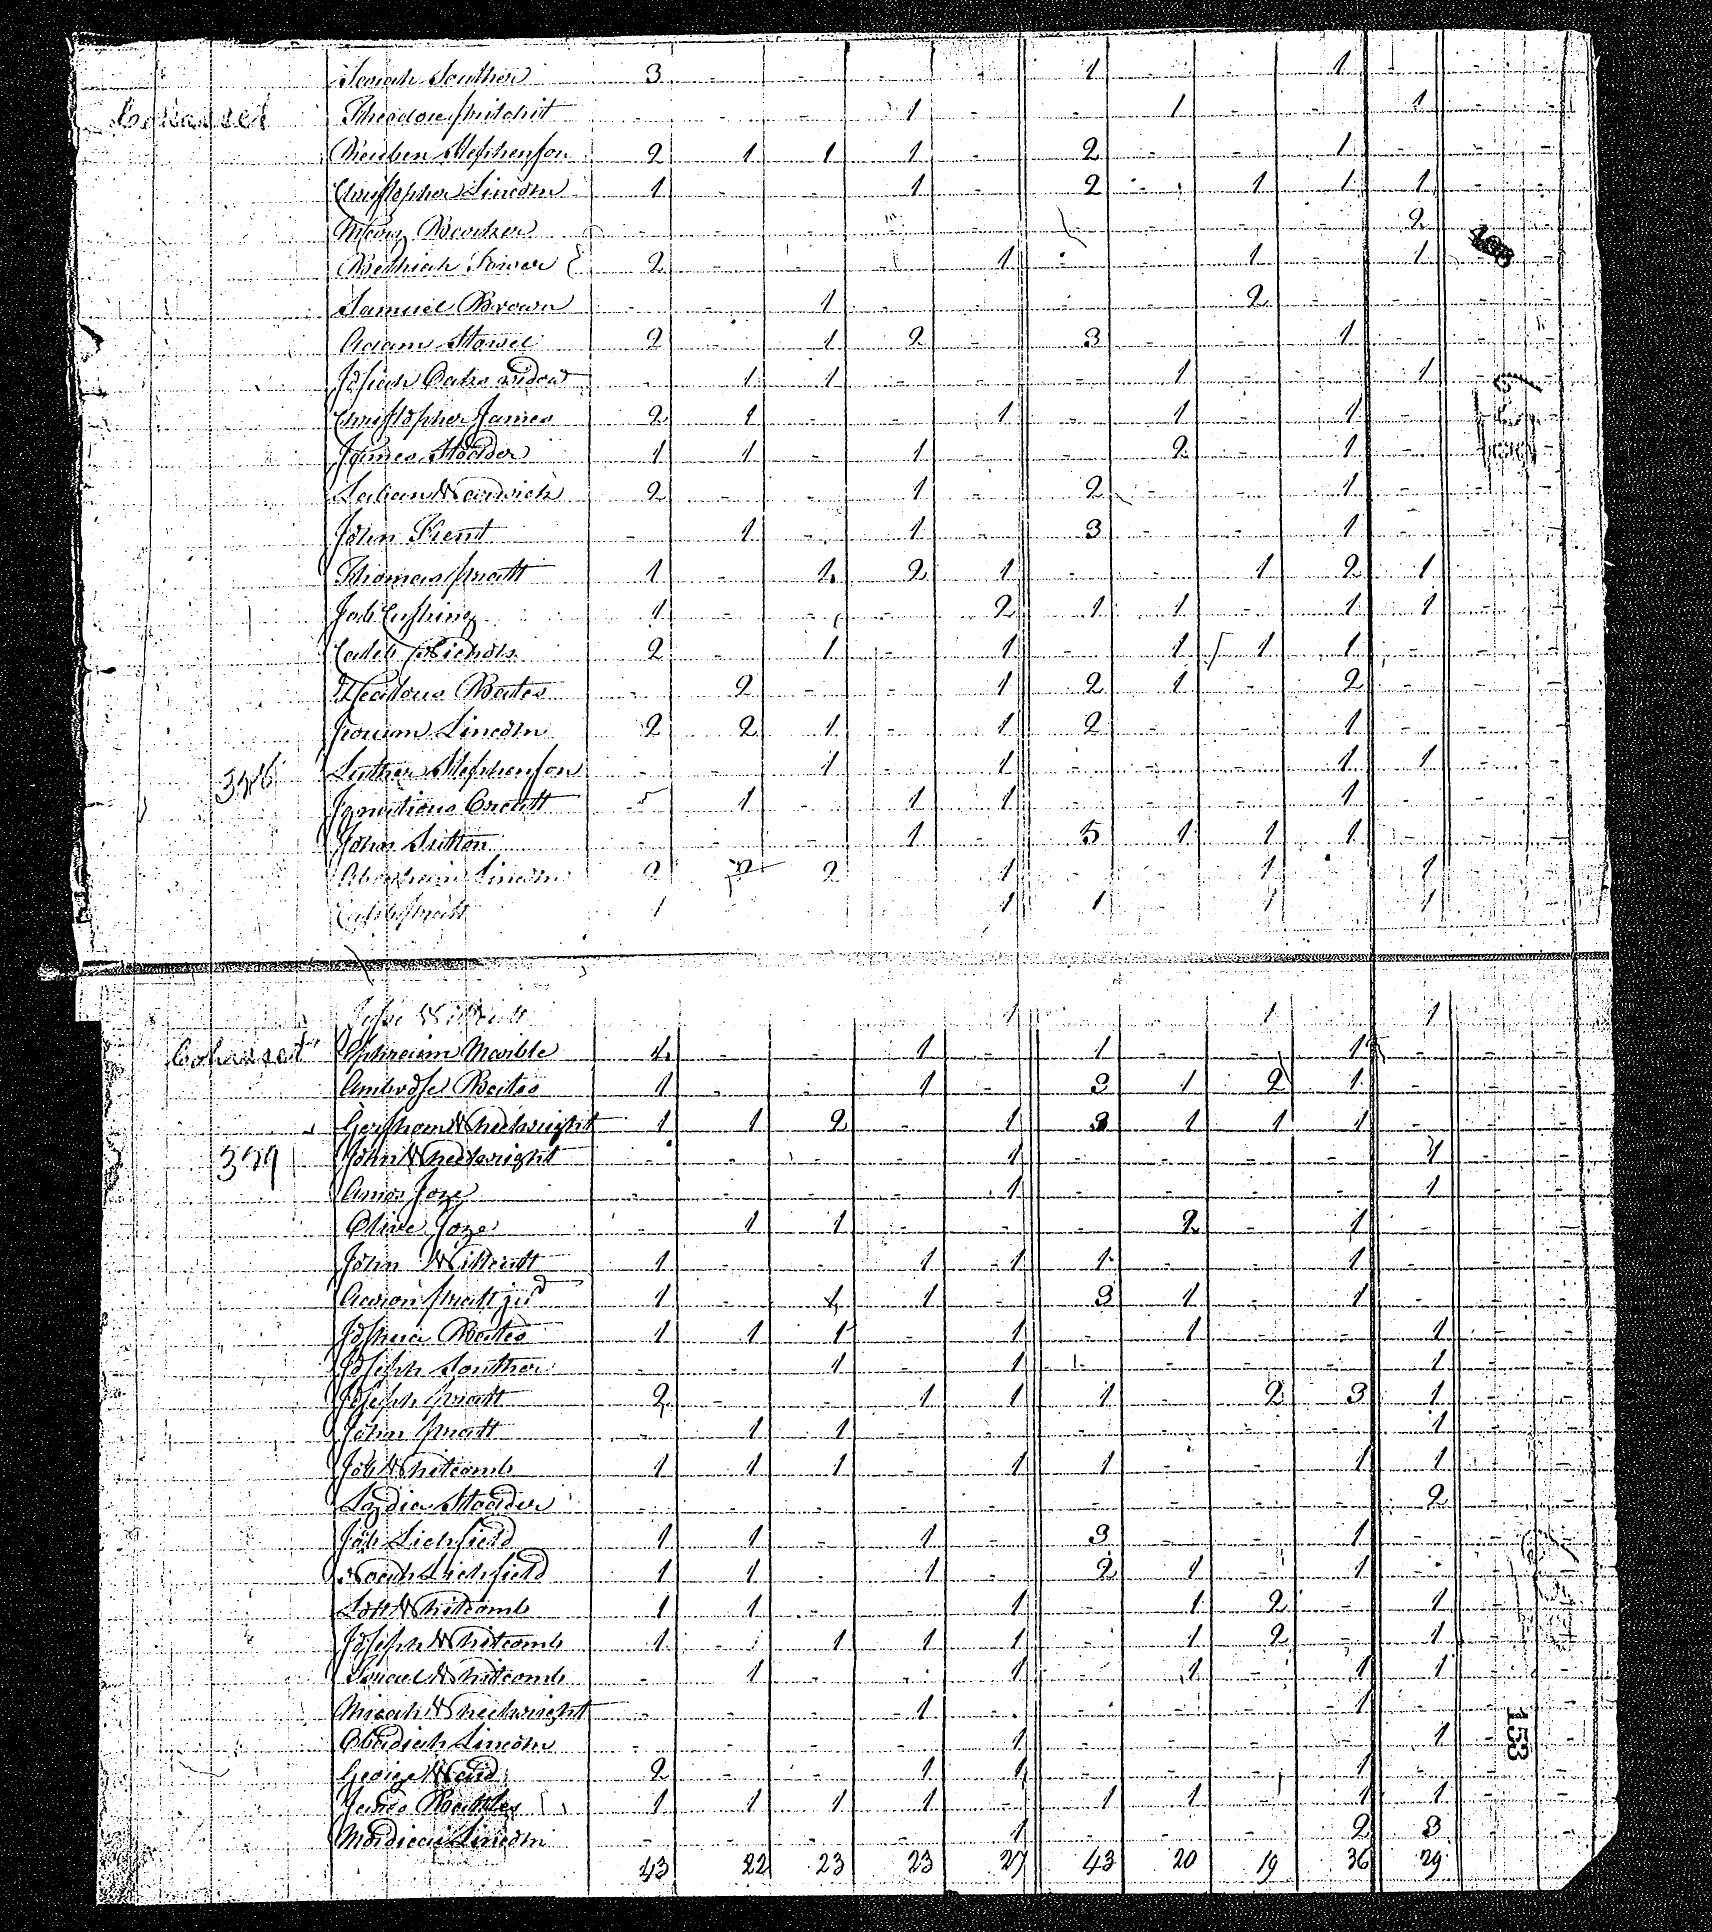 Isaiah Souther 3 - - - - 1 - - 1 - - -
Cohasset Theodore pritchit - - - 1 - - 1 - - 1 - -
Reuben Stephenson 2 1 1 1 - 2 - - 1 - - -
Christopher Lincoln 1 - - 1 - 2 - 1 1 1 - -
Mary - - - - - - - - 2 - -
Bethiah Tower 2 - - - 1 - - 1 - 1 - -
Samuel Brown - - 1 - - - - 2 - - - -
Adam Stowel 2 - 1 2 - 3 - - 1 - - -
Josiah Oakes widow - 1 1 - - - 1 - - 1 - -
Christopher James 2 1 - - 1 - 1 - 1 - - -
James Stodder 1 1 - 1 - - 2 - 1 - - -
Laban 2 - - 1 - 2 - - 1 - - -
John Kent - 1 - 1 - 3 - - 1 - - -
Thomas pratt 1 - 1 2 1 - - 1 2 1 - -
Job Cushing 1 - - - 2 1 1 - 1 1 - -
Caleb Nichols 2 - 1 - 1 - 1 1 1 - - -
Bates - 2 - - 1 2 1 - 2 - - -
Lincoln 2 2 1 - 1 2 - - 1 - - -
326 Luther Stephenson - - 1 - 1 - - - 1 1 - -
Orcutt - 1 - 1 1 - - - 1 - - -
John Sutton - - - 1 - 5 1 1 1 - - -
Abraham Lincoln 2 2 2 1 - - 1 1
Caleb pratt 1 1 1 1 1
1 1 1
Cohasset Ephraim Marble 1 - - 1 - 1 - - 1 - - -
Ambrose Bates 1 - - 1 - 3 1 2 1 - - -
Gershom Wheelwright 1 1 2 - 1 3 1 1 1 - - -
329 John Wheelwright - - - - 1 - - - - 1 - -
Amos Joze - - - - 1 - - - - 1 - -
Olive Joze - 1 1 - - - 2 - 1 - - -
John 1 - - 1 1 1 - - 1 - - -
Aaron pratt jud 1 - 1 1 - 3 1 - 1 - - -
Joshua Bates 1 1 1 - 1 - 1 - - 1 - -
Joseph Souther - - 1 - 1 - - - - 1 - -
Joseph pratt 2 - - 1 1 1 - 2 3 1 - -
John pratt - 1 1 - - - - - - 1 - -
Job Whitcomb 1 1 1 - 1 1 - - 1 1 - -
Lydia Stodder - - - - - - - - - 2 - -
Job Lichfield 1 1 - 1 - 3 - - 1 - - -
Noah Lichfield 1 1 - 1 - 2 1 - 1 - - -
Lott Whitcomb 1 1 - - 1 - 1 2 - 1 - -
Joseph Whitcomb 1 - 1 1 1 - 1 2 - 1 - -
Israel Whitcomb - 1 - - 1 - 1 - 1 1 - -
Micah Wheelwright - - - 1 - - - - 1 - - -
Obadiah Lincoln - - - - 1 - - - - 1 - -
George 2 - - 1 1 - - - 1 - - -
James 1 1 1 1 - 1 1 - 1 1 - -
Mordicai Lincoln - - - - 1 - - - 2 3 - -
43 22 23 23 27 43 20 19 36 29
153